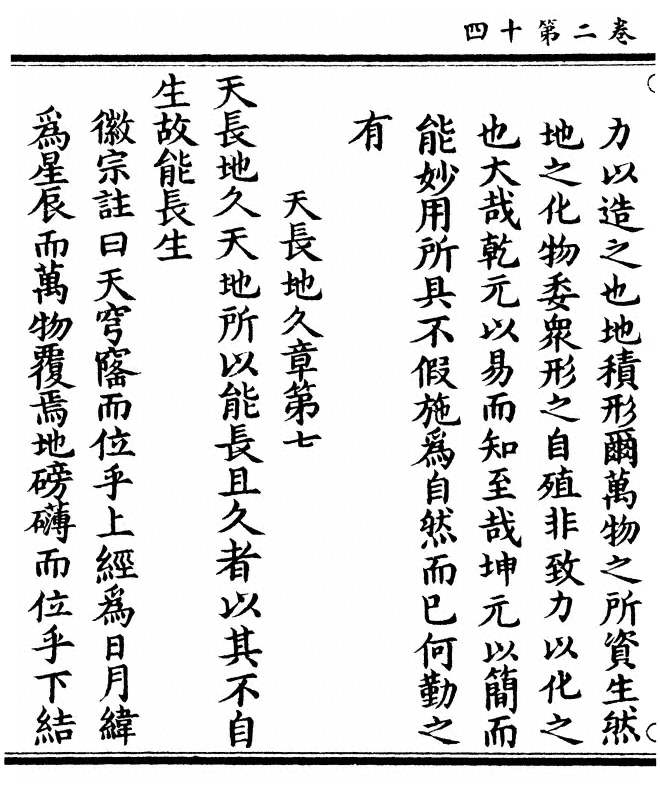 卷二第十四
力以造之也地積形爾萬物之所資生然
地之化物委衆形之自殖非致力以化之
也大哉乾元以易而知至哉坤元以簡而
能妙用所具不假施爲自然而已何勤之
有
天長地久章第七
天長地久天地所以能長且久者以其不自
生故能長生
徽宗註曰天穹窿而位乎上經爲日月緯
爲星辰而萬物覆焉地磅礴而位乎下結